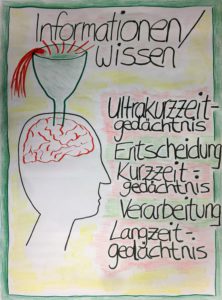 Informationen/
Wissen
Ultrakurzzeit-
gedächtnis
Entscheidung
Kurzzeit-
gedächtnis
Verarbeitung
Langzeit-
gedächtnis